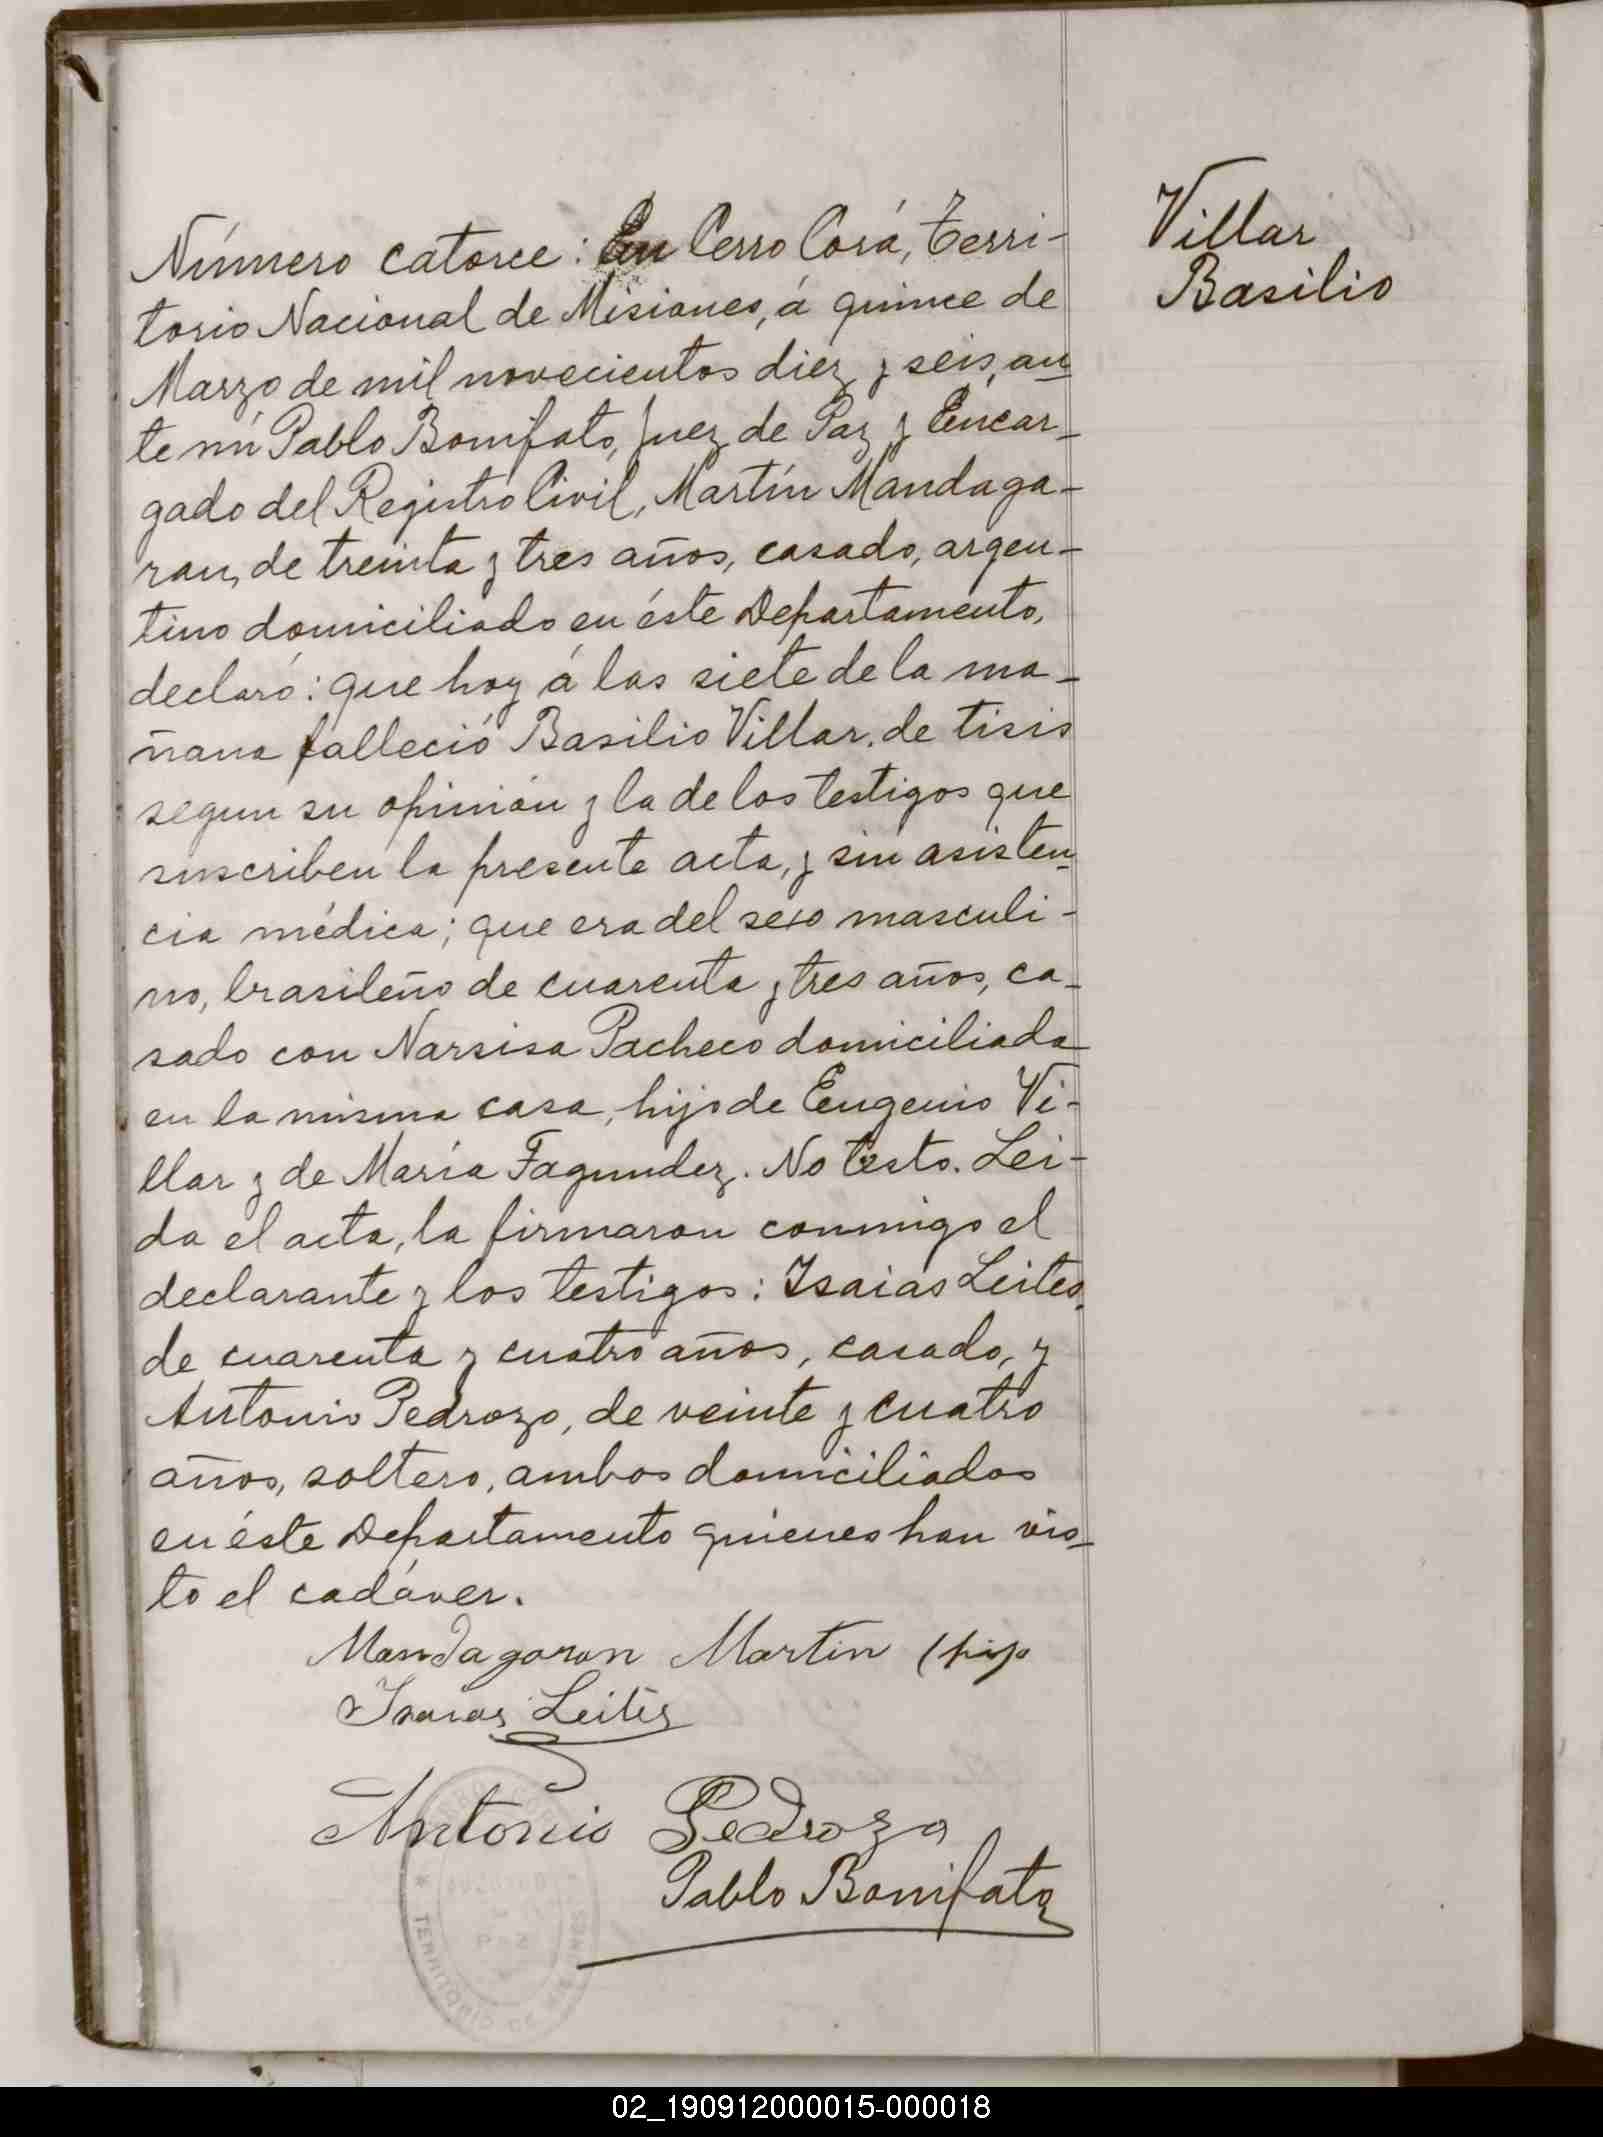 Villar
Basilio
Número catorce: En Cerro Corá, Terri-
torio Nacional de Misiones, á quince de
Marzo de mil novecientos diez y seis, an-
te mi Pablo Bonifato, Juez de Paz y Encar-
gado del Registro Civil, Martín Mandaga-
ran, de treinta y tres años, casado, argen-
tino domiciliado en éste Departamento,
declaró: que hoy á las siete de la ma-
ñana falleció Basilio Villar. de tisis
segun su opinión y la de los testigos que
suscriben la presente acta, y sin asisten-
cia médica; que era del sexo masculi-
no, brasileño de cuarenta y tres años, ca-
sado con Narsisa Pacheco domiciliada
en la misma casa, hijo de Eugenio Vi-
llar y de María Fagundez. No testo. Lei-
da el acta, la firmaron conmigo el
declarante y los testigos: Isaias Leites,
de cuarenta y cuatro años, casado, y
Antonio Pedrozo, de veinte y cuatro
años, soltero, ambos domiciliados
en éste Departamento quienes han vis-
to el cadáver.
Mandagaran Martin (hijo
Isaias Leites
Antonio Pedrozo
Pablo Bonifato
TERRITORIO DE MISIONES
02_190912000015-000018